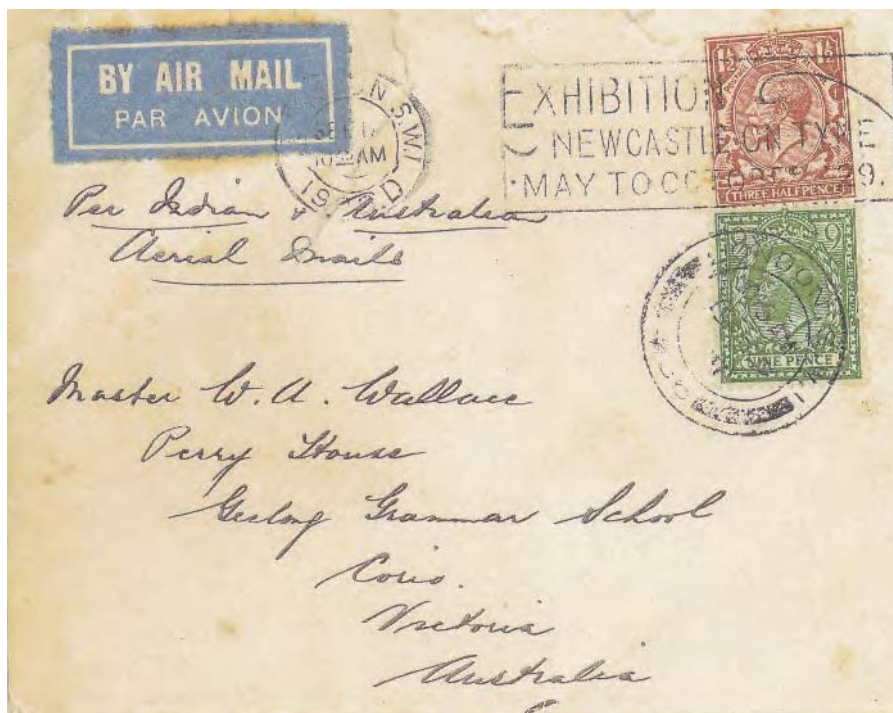 BY AIR MAIL
PAR AVION
N.S.W.1
SEP 17
10 AM
19 D
EXHIBITION
NEWCASTLE ON TYNE
MAY TO OCTOBER 29.
THREE HALFPENCE
NINE PENCE
Per Indian & Australian
Aerial Mails
Master W. A. Wallace
Perry House
Geelong Grammar School
Corio.
Victoria
Australia